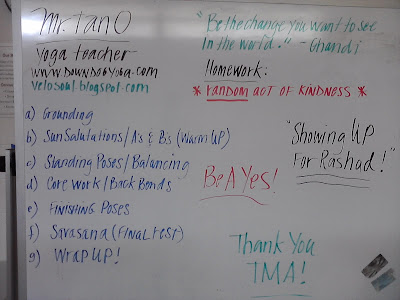 Mr. Tan O
Yoga teacher
www.DownDogYoga.com
VeloSoul.blogspot.com
a) Grounding
b) Sun Salutations / A's & B's (Warm UP)
c) Standing Poses / Balancing
d) Core Work / Back Bends
e) FINISHING POSES
f) Savasana (FINAL rest)
g) Wrap UP!
"Be the change you want to see
in the world." - Ghandi
Homework:
* random act of KINDNESS *
"Showing UP
For Rashad!"
Be A Yes!
Thank You
IMA!